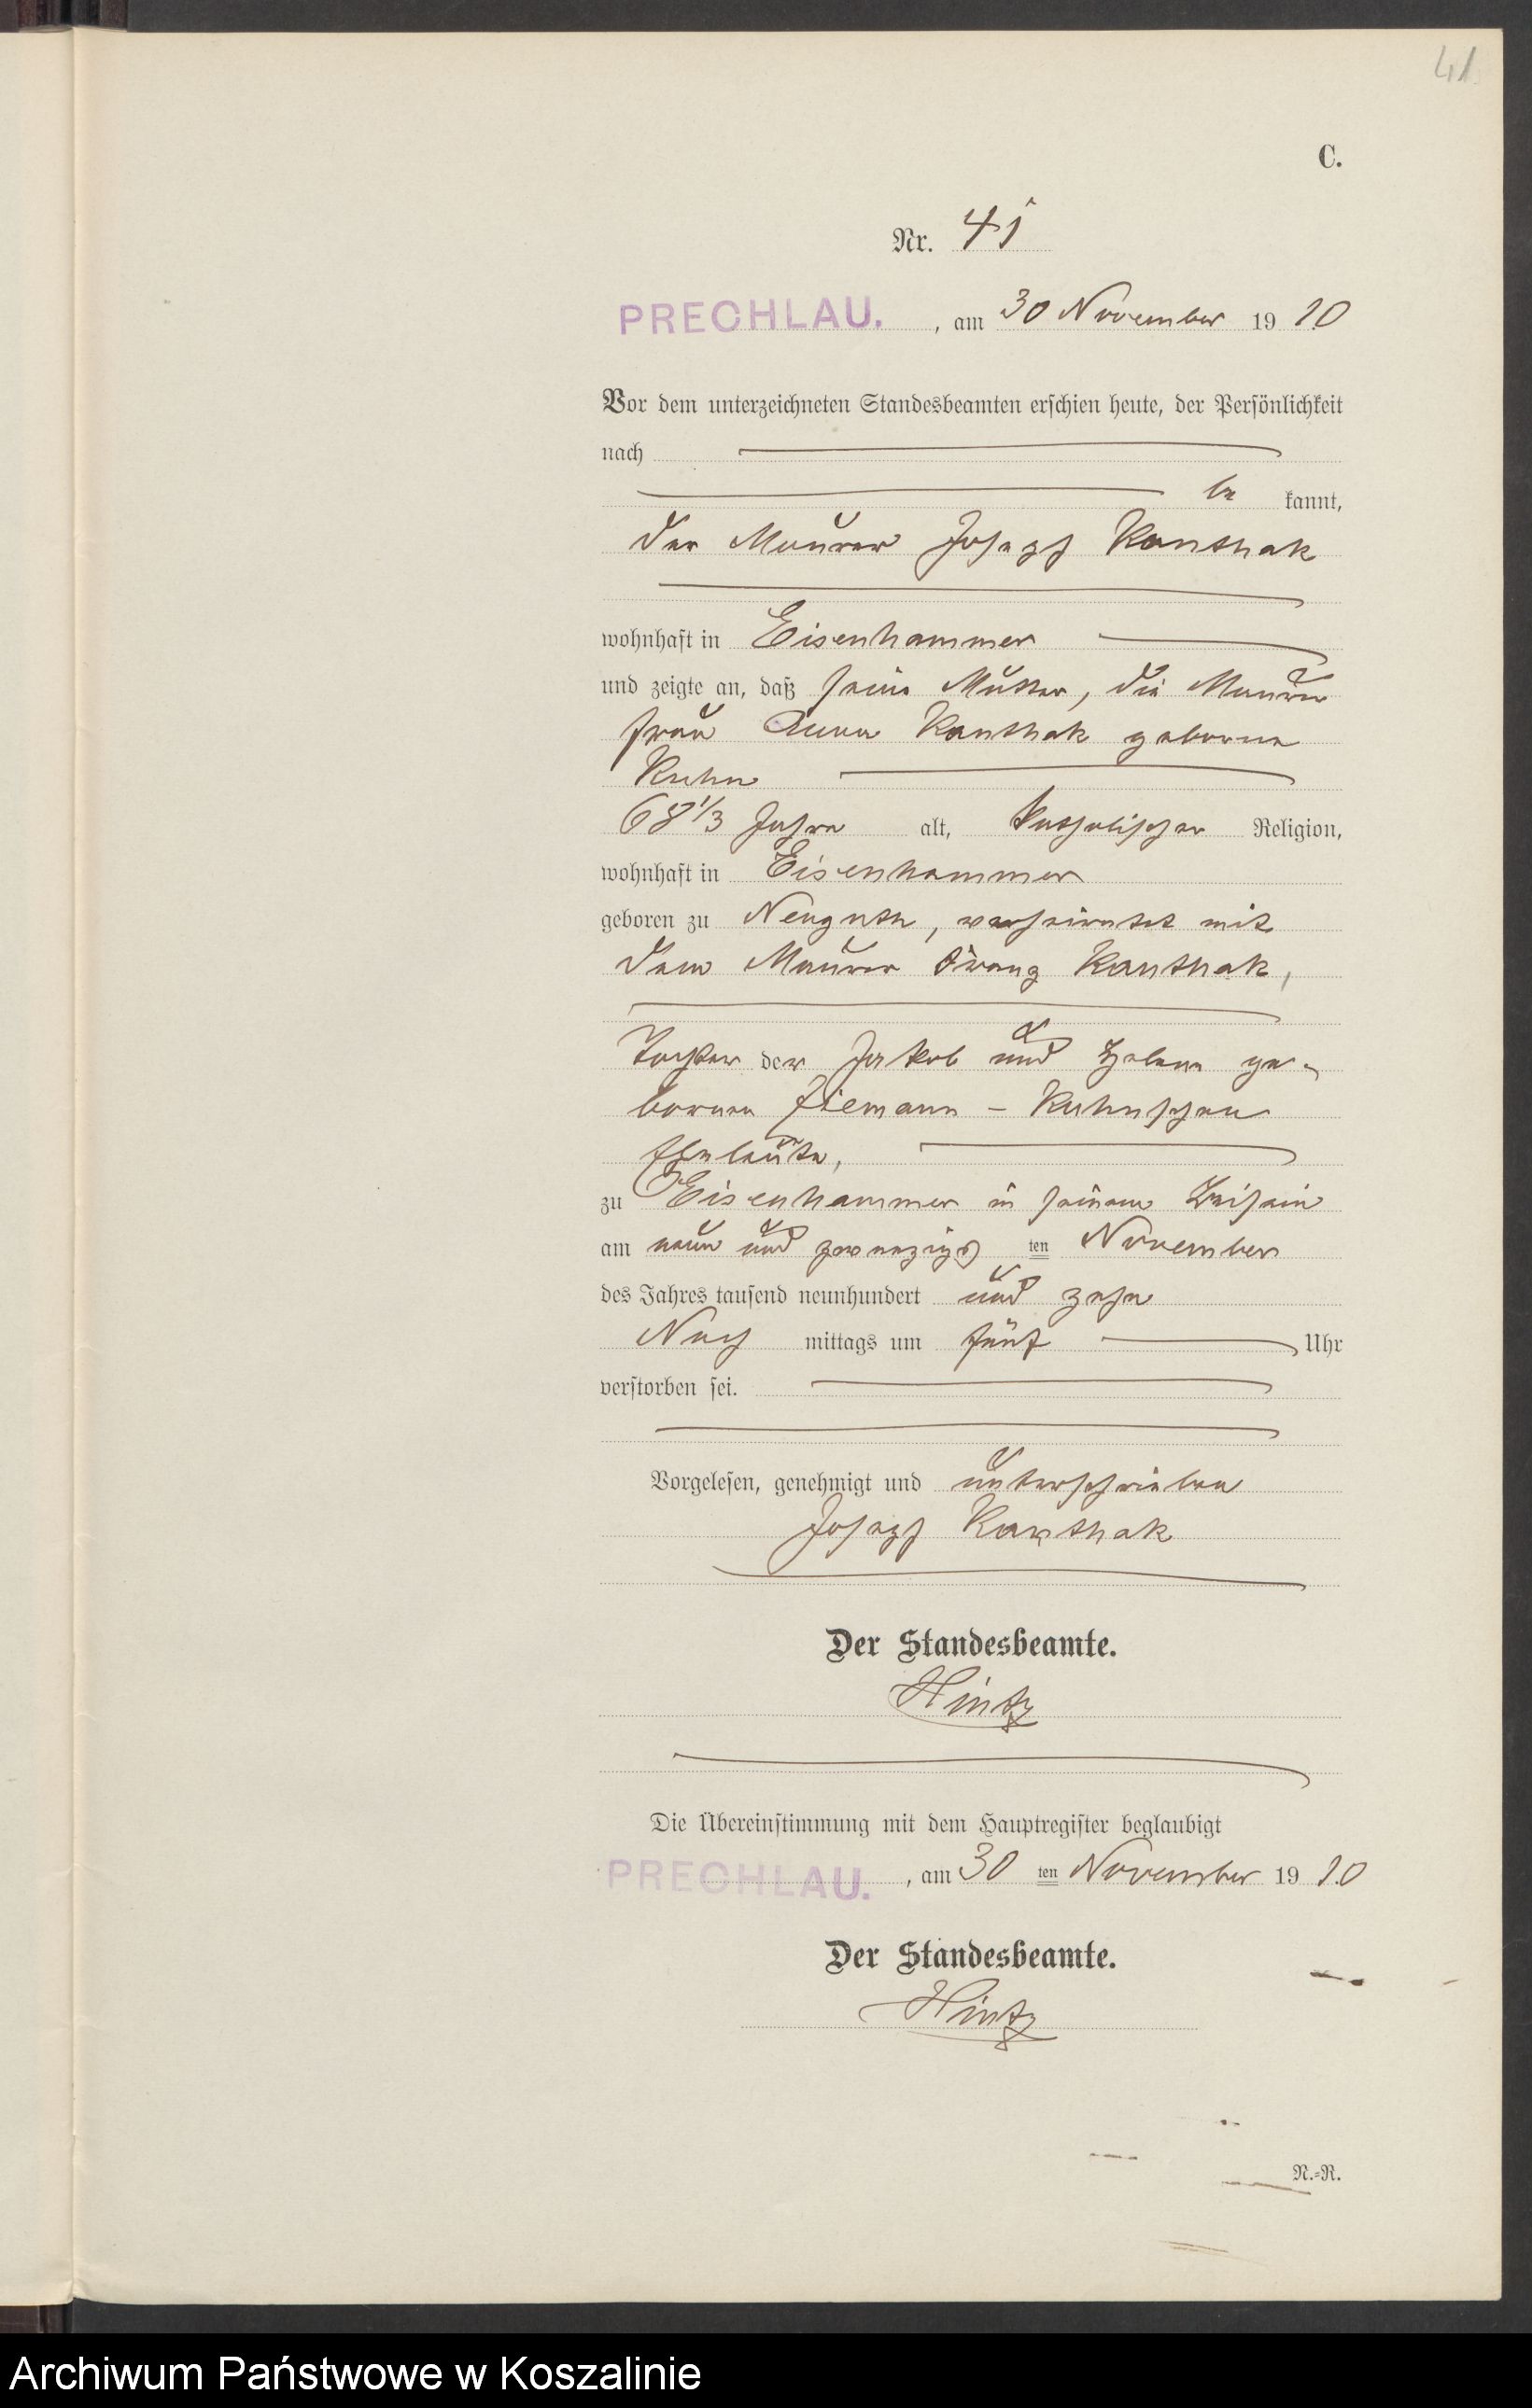 41
C.
Nr. 41
PRECHLAU. , am 30 November 19 10
Vor dem unterzeichneten Standesbeamten erschien heute, der Persönlichkeit
nach
be kannt,
der Maurer Joseph Kanthak
wohnhaft in Eisenhammer
und zeigte an, daß seine Mutter, die Maurer
frau Anna Kanthak geborene
Kuhn
68 1/3 Jahre alt, katholischer Religion,
wohnhaft in Eisenhammer
geboren zu Neuguth, verheirathet mit
dem Maurer Franz Kanthak,
Tochter der Jakob und Helene ge-
borenen Ziemann - Kuhnschen
Eheleute,
zu Eisenhammer in seinem Beisein
am neun und zwanzigsten November
des Jahres tausend neunhundert und zehn
Nach mittags um fünf Uhr
verstorben sei.
Vorgelesen, genehmigt und unterschrieben
Joseph Kanthak
Der Standesbeamte.
Hintz
Die Übereinstimmung mit dem Hauptregister beglaubigt
PRECHLAU. , am 30 ten November 19 10
Der Standesbeamte.
Hintz
N.-R.
Archiwum Państwowe w Koszalinie